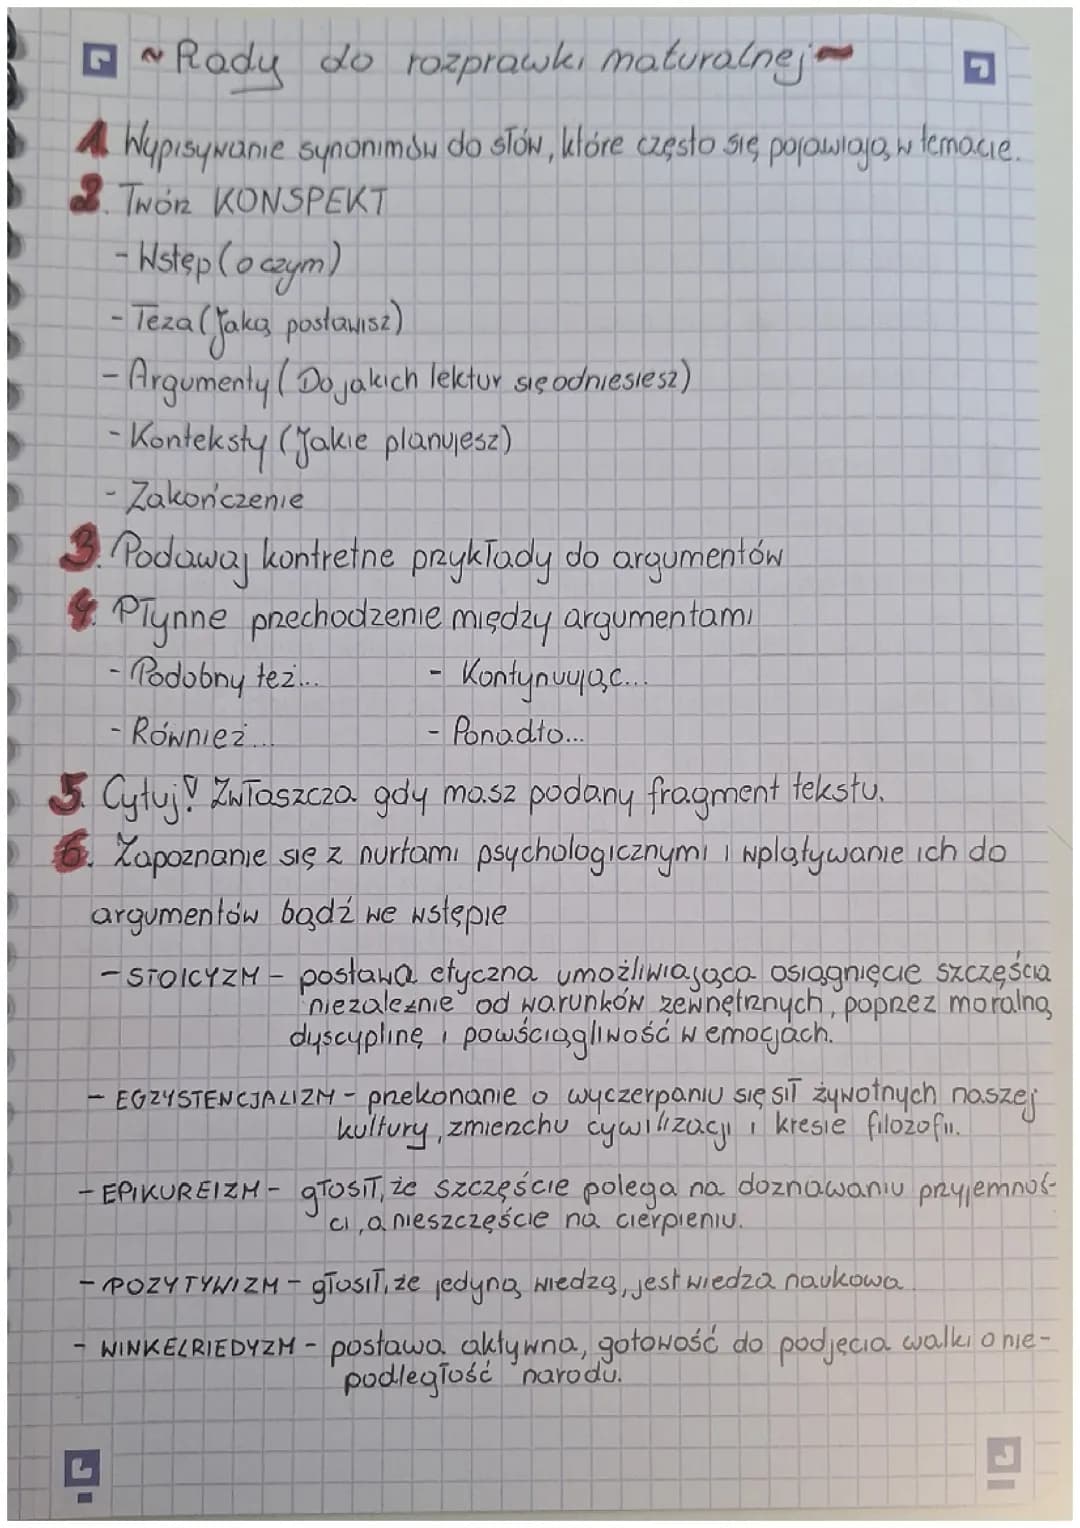 ~ Rady do rozprawki maturalnej ~
1. Wypisywanie synonimów do słów, które często się pojawiają w temacie.
2. Twórz KONSPEKT
- Wstęp (o czym)
- Teza (Jaką postawisz)
- Argumenty ( Do jakich lektur się odniesiesz)
- Konteksty (Jakie planujesz)
- Zakończenie
3. Podawaj kontretne przykłady do argumentów
4. Płynne przechodzenie między argumentami
- Podobny też... - Kontynuując...
- Również... - Ponadto...
5. Cytuj! Zwłaszcza gdy masz podany fragment tekstu.
6. Zapoznanie się z nurtami psychologicznymi i wplątywanie ich do
argumentów bądź we wstępie
- STOICYZM - postawa etyczna umożliwiająca osiągnięcie szczęścia
niezależnie od warunków zewnętrznych, poprzez moralną
dyscyplinę i powściągliwość w emocjach.
- EGZYSTENCJALIZM - przekonanie o wyczerpaniu się sił żywotnych naszej
kultury, zmierzchu cywilizacji i kresie filozofii.
- EPIKUREIZM - głosił, że szczęście polega na doznawaniu przyjemnoś-
ci, a nieszczęście na cierpieniu.
- POZYTYWIZM - głosił, że jedyną wiedzą, jest wiedza naukowa.
- WINKELRIEDYZM - postawa aktywna, gotowość do podjęcia walki o nie-
podległość narodu.